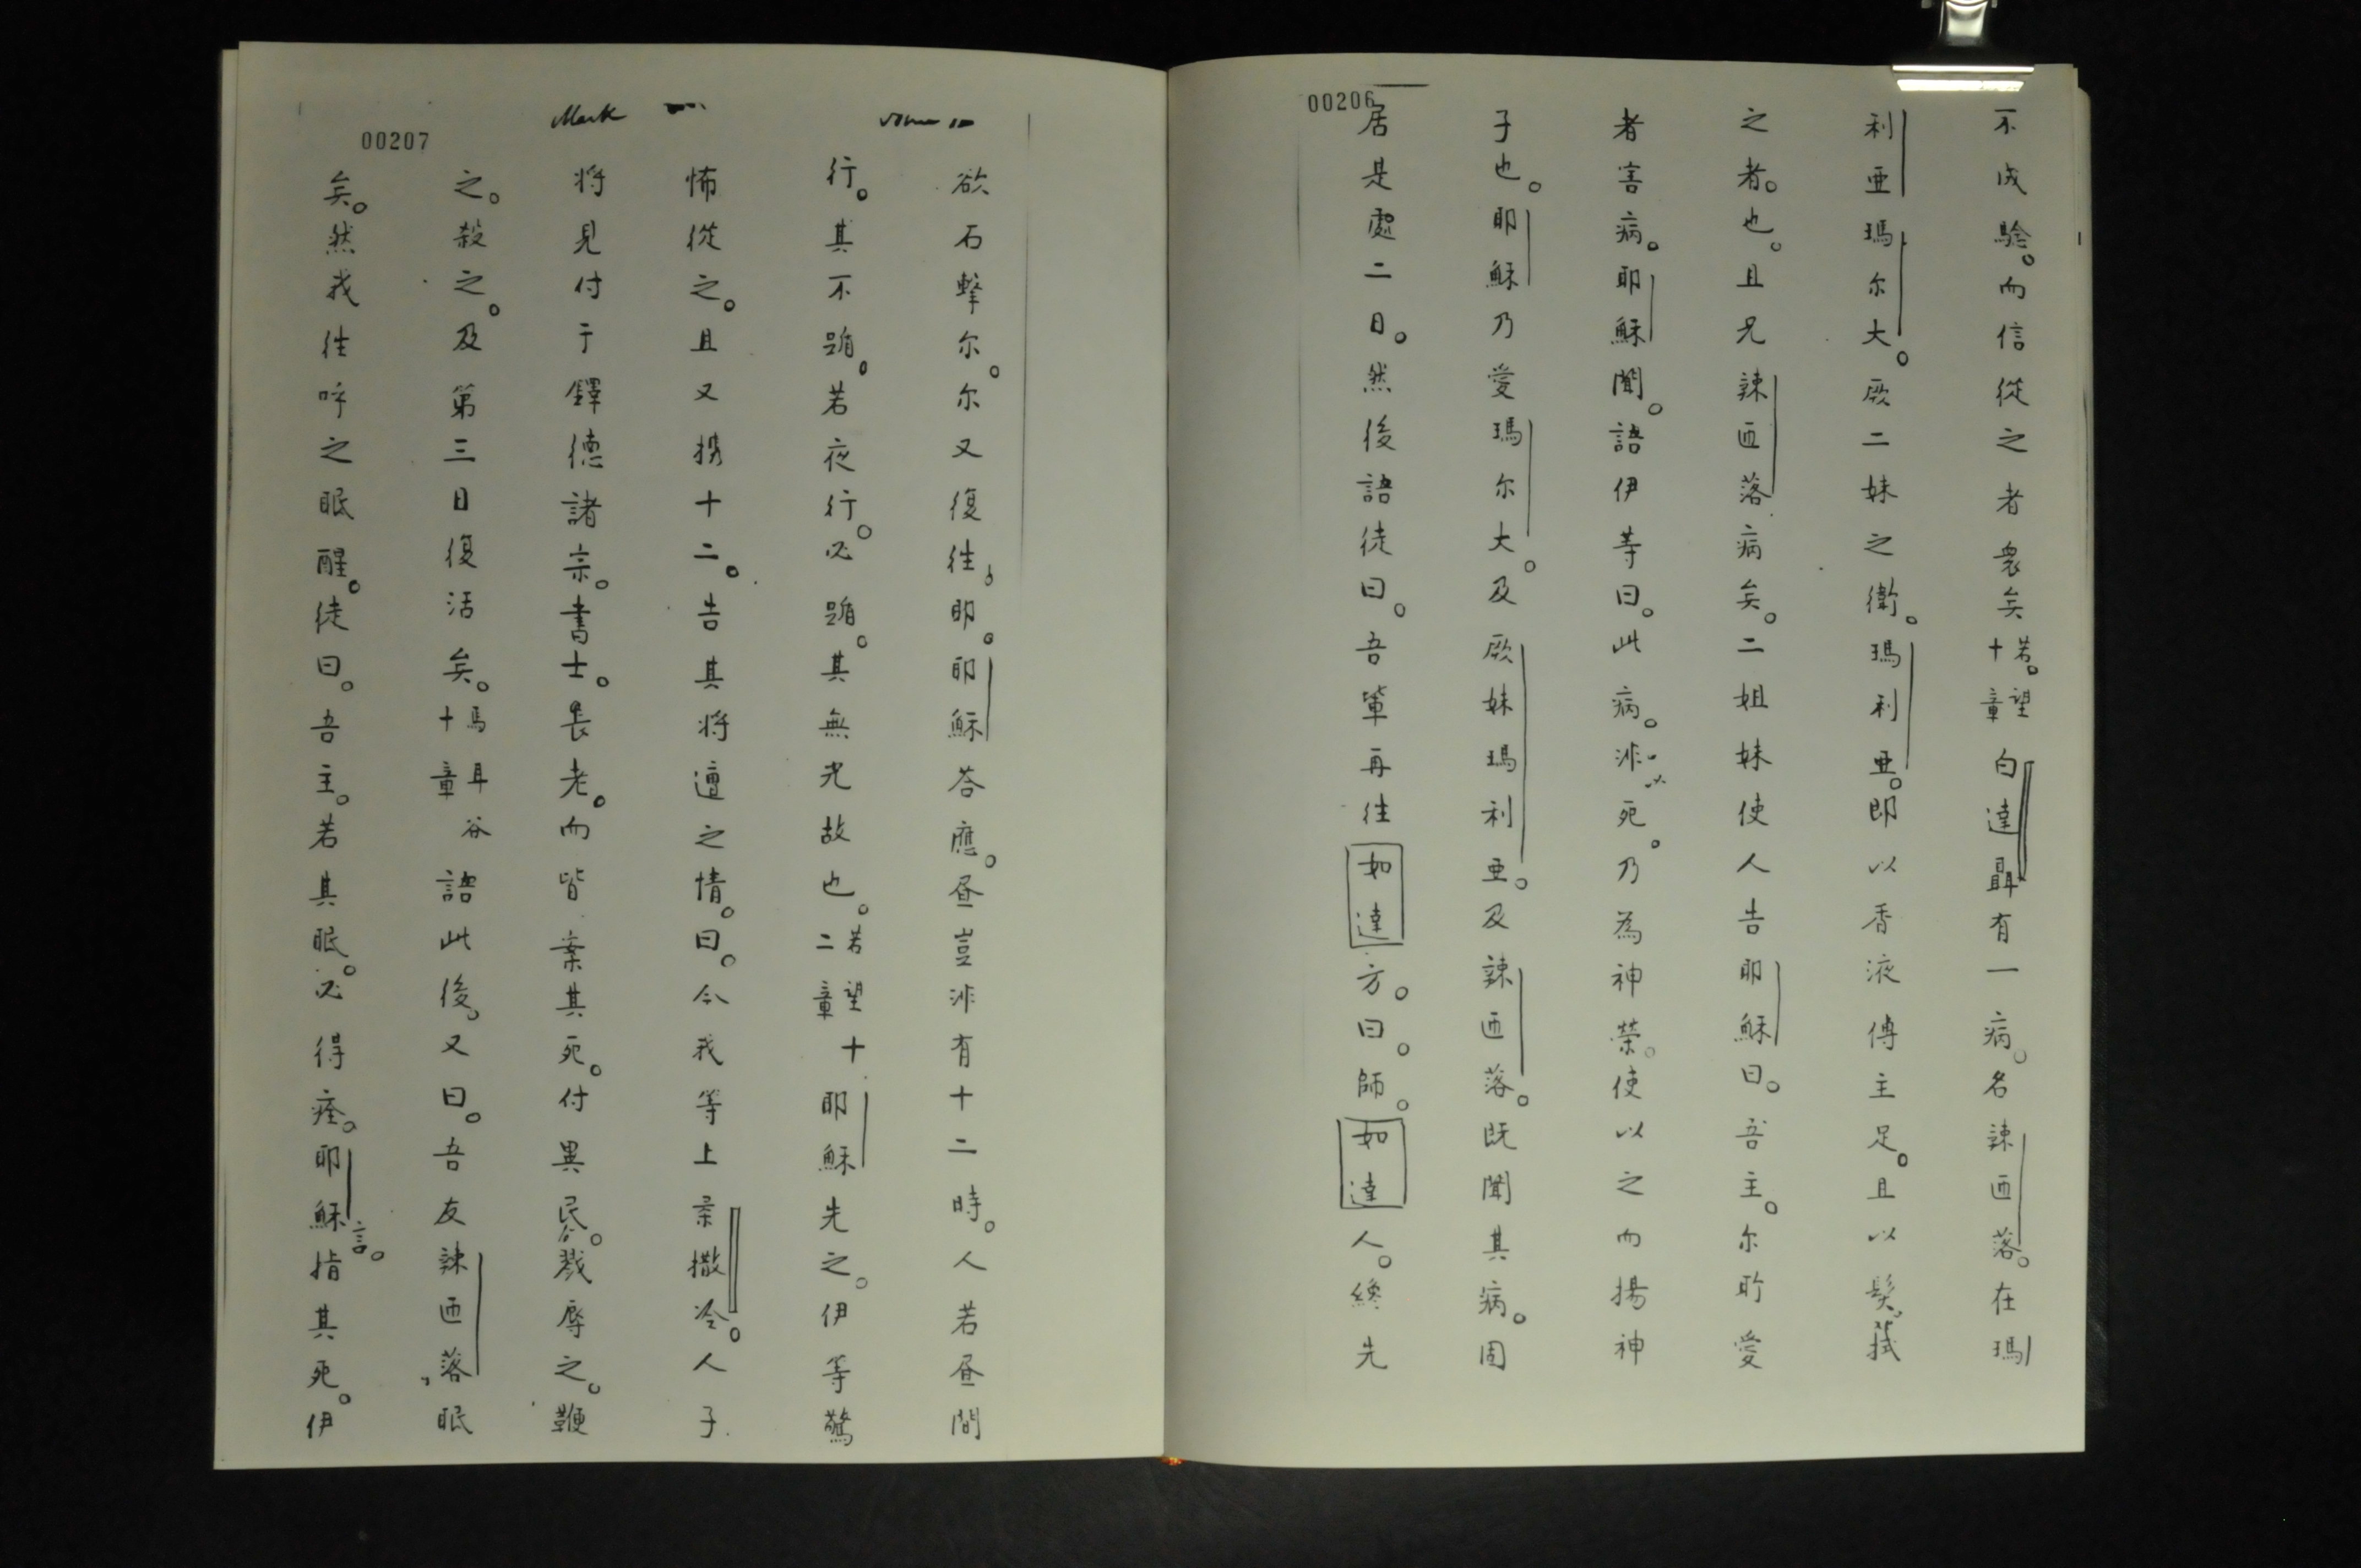 00206
不成驗。而信從之者眾矣若望十章白達聶有一病。名辣匝落。在瑪
利亜瑪尔大。厥二妹之衛。瑪利亜。即以香液傅主足。且以髮。拭
之者。也。且兄辣匝落病矣。二姐妹使人告耶穌曰。吾主。尔所愛
者害病。耶穌聞。語伊等曰。此病。非死。乃為神榮。使以之而揚神
子也。耶穌乃愛瑪尔大。及厥妹瑪利亜。及辣匝落。既聞其病。固
居是處二日。然後語徒曰。吾軰再往如達方。曰。師。如達人。纔先
00207
Mark
欲石擊尔。尔又復往，耶。耶穌荅應。昼豈非有十二時。人若昼間
行。其不踣。若夜行。必踣。其無光故也。若望十二章耶穌先之。伊等驚
怖從之。且又携十二。告其將遭之情。曰。今我等上柔撒冷。人子
将見付于鐸德諸宗。書士。長老。而皆案其死。付異民。戮辱之。鞭
之。殺之。及第三日復活矣。馬耳谷十章語此後。又曰。吾友辣匝落眠
矣。然我往呼之眠醒。徒曰。吾主。若其眠。必得痊。耶穌言。指其死。伊